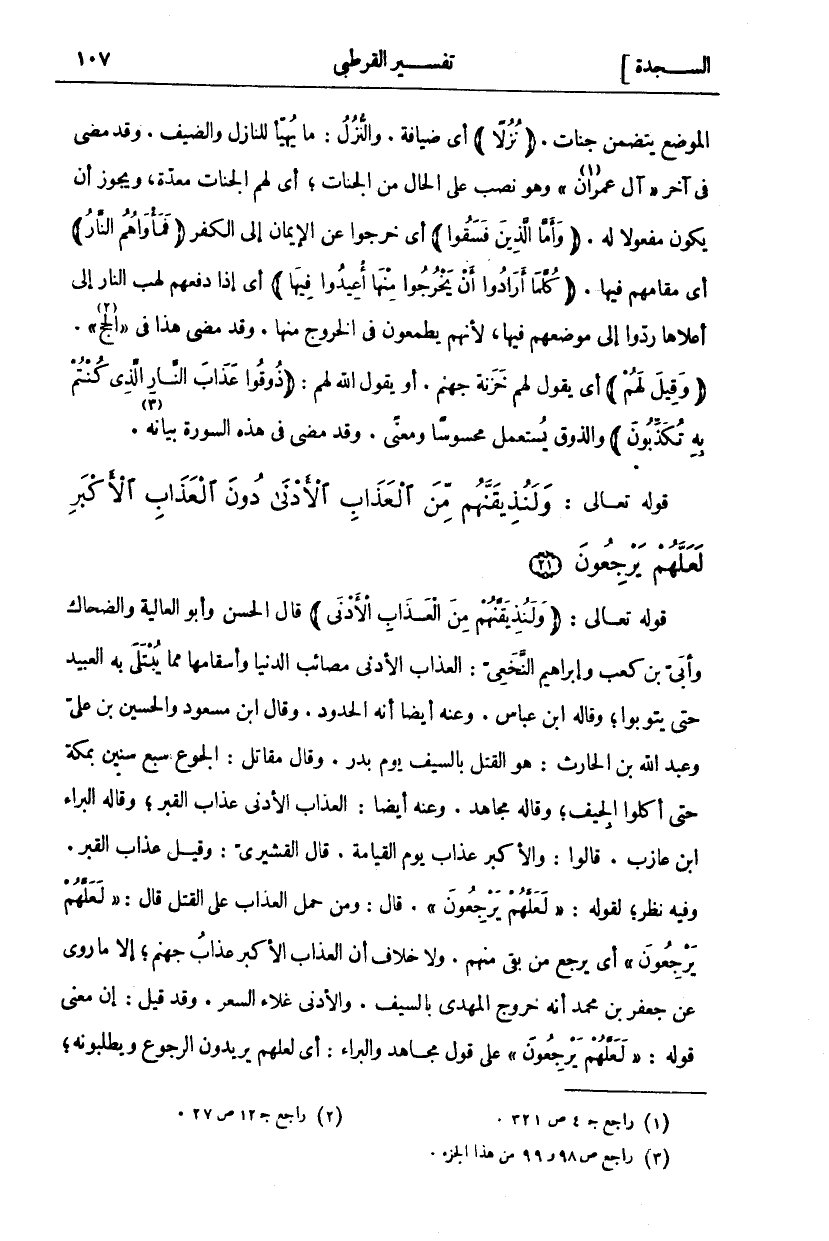 السجدة ] تفسير القرطبى ١٠٧
الموضع يتضمن جنات . ﴿ نُزُلًا ﴾ أى ضيافة . والنُّزُلُ : ما يُهيّأ للنازل والضيف . وقد مضى
فى آخر « آل عمران(١) » وهو نصب على الحال من الجنات ؛ أى لهم الجنات معدّة، ويجوز أن
يكون مفعولا له . ﴿ وَأَمَّا الَّذِينَ فَسَقُوا ﴾ أى خرجوا عن الإيمان إلى الكفر ﴿ فَمَأْوَاهُمُ النَّارُ ﴾
أى مقامهم فيها . ﴿ كُلَّمَا أَرَادُوا أَنْ يَخْرُجُوا مِنْهَا أُعِيدُوا فِيهَا ﴾ أى إذا دفعهم لهب النار إلى
أعلاها ردّوا إلى موضعهم فيها، لأنهم يطمعون فى الخروج منها . وقد مضى هذا فى «الحج(٢)» .
﴿ وَقِيلَ لَهُمْ ﴾ أى يقول لهم خَزَنة جهنم . أو يقول الله لهم : ﴿ذُوقُوا عَذَابَ النَّارِ الَّذِى كُنْتُمْ
بِهِ تُكَذِّبُونَ ﴾ والذوق يُستعمل محسوسًا ومعنًى . وقد مضى فى هذه السورة بيانه(٣) .
قوله تعـالى : وَلَنُذِيقَنَّهُم مِّنَ ٱلْعَذَابِ ٱلْأَدْنَىٰ دُونَ ٱلْعَذَابِ ٱلْأَكْبَرِ
لَعَلَّهُمْ يَرْجِعُونَ ﴿٢١﴾
قوله تعـالى : ﴿ وَلَنُذِيقَنَّهُمْ مِنَ الْعَـذَابِ الْأَدْنَى ﴾ قال الحسن وأبو العالية والضحاك
وأبىّ بن كعب وإبراهيم النَّخَعِىّ : العذاب الأدنى مصائب الدنيا وأسقامها مما يُبْتَلَى به العبيد
حتى يتوبوا؛ وقاله ابن عباس . وعنه أيضا أنه الحدود . وقال ابن مسعود والحسين بن علىّ
وعبد الله بن الحارث : هو القتل بالسيف يوم بدر . وقال مقاتل : الجوع سبع سنين بمكة
حتى أكلوا الجِيف؛ وقاله مجاهد . وعنه أيضا : العذاب الأدنى عذاب القبر ؛ وقاله البراء
ابن عازب . قالوا : والأكبر عذاب يوم القيامة . قال القشيرىّ : وقيـل عذاب القبر .
وفيه نظر؛ لقوله : « لَعَلَّهُمْ يَرْجِعُونَ » . قال : ومن حمل العذاب على القتل قال : « لَعَلَّهُمْ
يَرْجِعُونَ » أى يرجع من بقى منهم . ولا خلاف أن العذاب الأكبر عذابُ جهنم؛ إلا ما روى
عن جعفر بن محمد أنه خروج المهدى بالسيف . والأدنى غلاء السعر . وقد قيل : إن معنى
قوله : « لَعَلَّهُمْ يَرْجِعُونَ » على قول مجـاهد والبراء : أى لعلهم يريدون الرجوع ويطلبونه؛
(١) راجع جـ ٤ ص ٣٢١ . (٢) راجع جـ ١٢ ص ٢٧ .
(٣) راجع ص ٩٨ و ٩٩ من هذا الجزء .